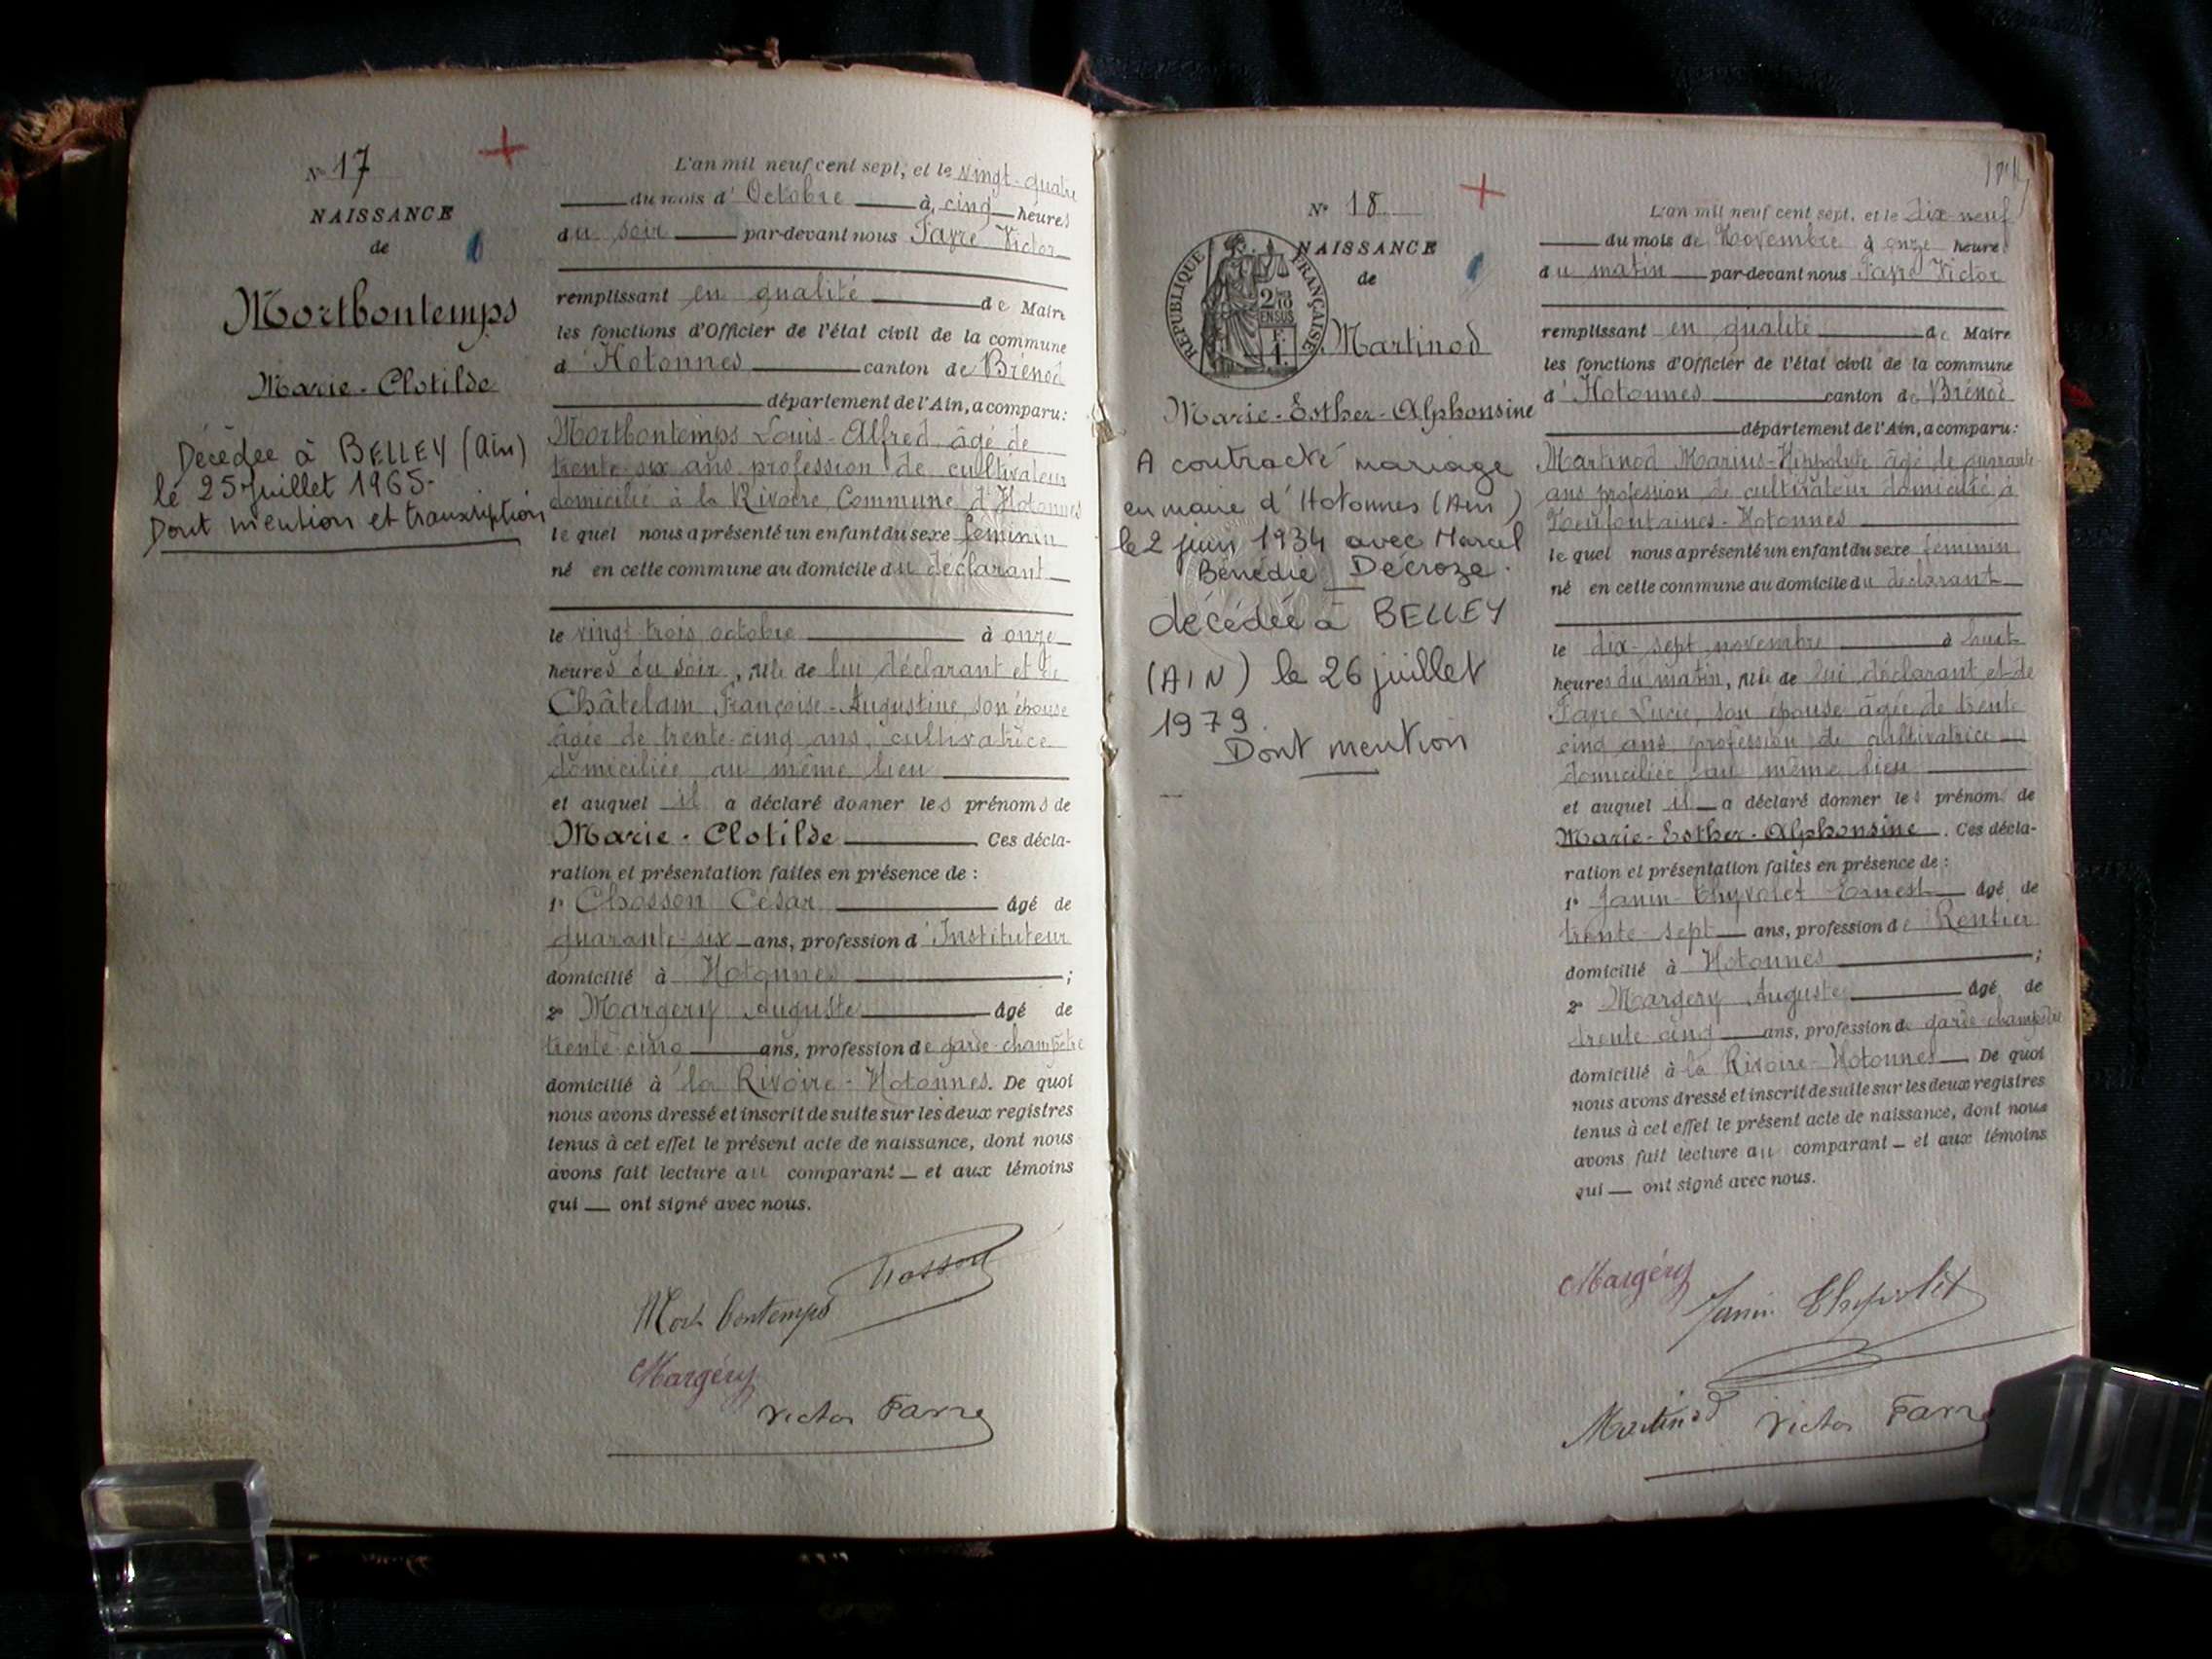 N° 17
NAISSANCE
de
Mortbontemps
Marie-Clotilde
Décédée à BELLEY (Ain)
le 25 Juillet 1965.
Dont mention et transcription
L'an mil neuf cent sept, et le vingt-quatre
du mois d'Octobre à cinq heures
du soir par-devant nous Favre Victor
remplissant en qualité de Maire
les fonctions d'Officier de l'état civil de la commune
d'Hotonnes canton de Brénod
département de l'Ain, a comparu:
Mortbontemps Louis-Alfred âgé de
trente-six ans profession de cultivateur
domicilié à la Rivoire Commune d'Hotonnes
lequel nous a présenté un enfant du sexe féminin
né en cette commune au domicile du déclarant
le vingt-trois octobre à onze
heures du soir, fille de lui déclarant et de
Châtelain Françoise-Augustine, son épouse
âgée de trente-cinq ans, cultivatrice
domiciliée au même lieu
et auquel il a déclaré donner les prénoms de
Marie-Clotilde. Ces décla-
ration et présentation faites en présence de :
1° Chosson César âgé de
quarante-six ans, profession d'Instituteur
domicilié à Hotonnes ;
2° Margery Auguste âgé de
trente-cinq ans, profession de garde-champêtre
domicilié à la Rivoire-Hotonnes. De quoi
nous avons dressé et inscrit de suite sur les deux registres
tenus à cet effet le présent acte de naissance, dont nous
avons fait lecture au comparant et aux témoins
qui ont signé avec nous.
Chosson
Mortbontemps
Margéry
Victor Favre
N° 18
NAISSANCE
de
RÉPUBLIQUE FRANÇAISE
2/10
EN SUS
Martinod
Marie-Esther-Alphonsine
A contracté mariage
en mairie d'Hotonnes (Ain)
le 2 juin 1934 avec Marcel
Bénédie Décroze.
décédée à BELLEY
(AIN) le 26 juillet
1979.
Dont mention
L'an mil neuf cent sept, et le dix-neuf
du mois de Novembre à onze heures
du matin par-devant nous Favre Victor
remplissant en qualité de Maire
les fonctions d'Officier de l'état civil de la commune
d'Hotonnes canton de Brénod
département de l'Ain, a comparu:
Martinod Marius-Hippolyte âgé de quarante
ans profession de cultivateur domicilié à
Neufontaines-Hotonnes
lequel nous a présenté un enfant du sexe féminin
né en cette commune au domicile du déclarant
le dix-sept novembre à huit
heures du matin, fille de lui déclarant et de
Favre Lucie, son épouse âgée de trente
cinq ans profession de cultivatrice
domiciliée au même lieu
et auquel il a déclaré donner les prénoms de
Marie-Esther-Alphonsine. Ces décla-
ration et présentation faites en présence de :
1° Janin-Thyvolet Ernest âgé de
trente-sept ans, profession de Rentier
domicilié à Hotonnes ;
2° Margery Auguste âgé de
trente-cinq ans, profession de garde-champêtre
domicilié à la Rivoire-Hotonnes. De quoi
nous avons dressé et inscrit de suite sur les deux registres
tenus à cet effet le présent acte de naissance, dont nous
avons fait lecture au comparant et aux témoins
qui ont signé avec nous.
Margéry
Janin Thyvolet
Martinod
Victor Favre